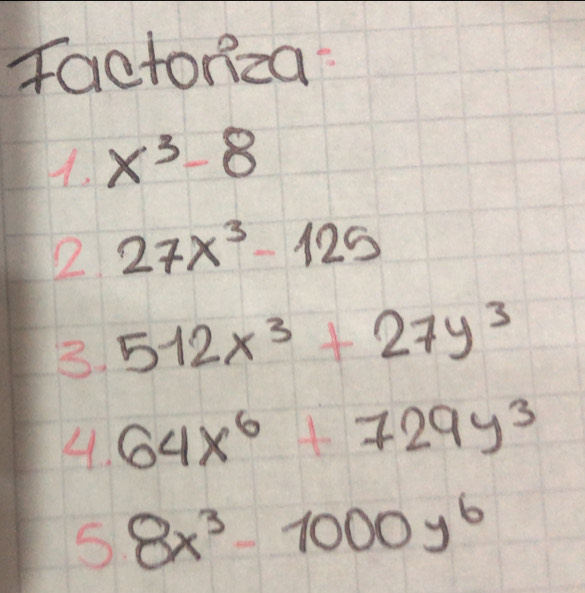 Factoriza:
1. x³ - 8
2. 27x³ - 125
3. 512x³ + 27y³
4. 64x⁶ + 729y³
5. 8x³ - 1000y⁶